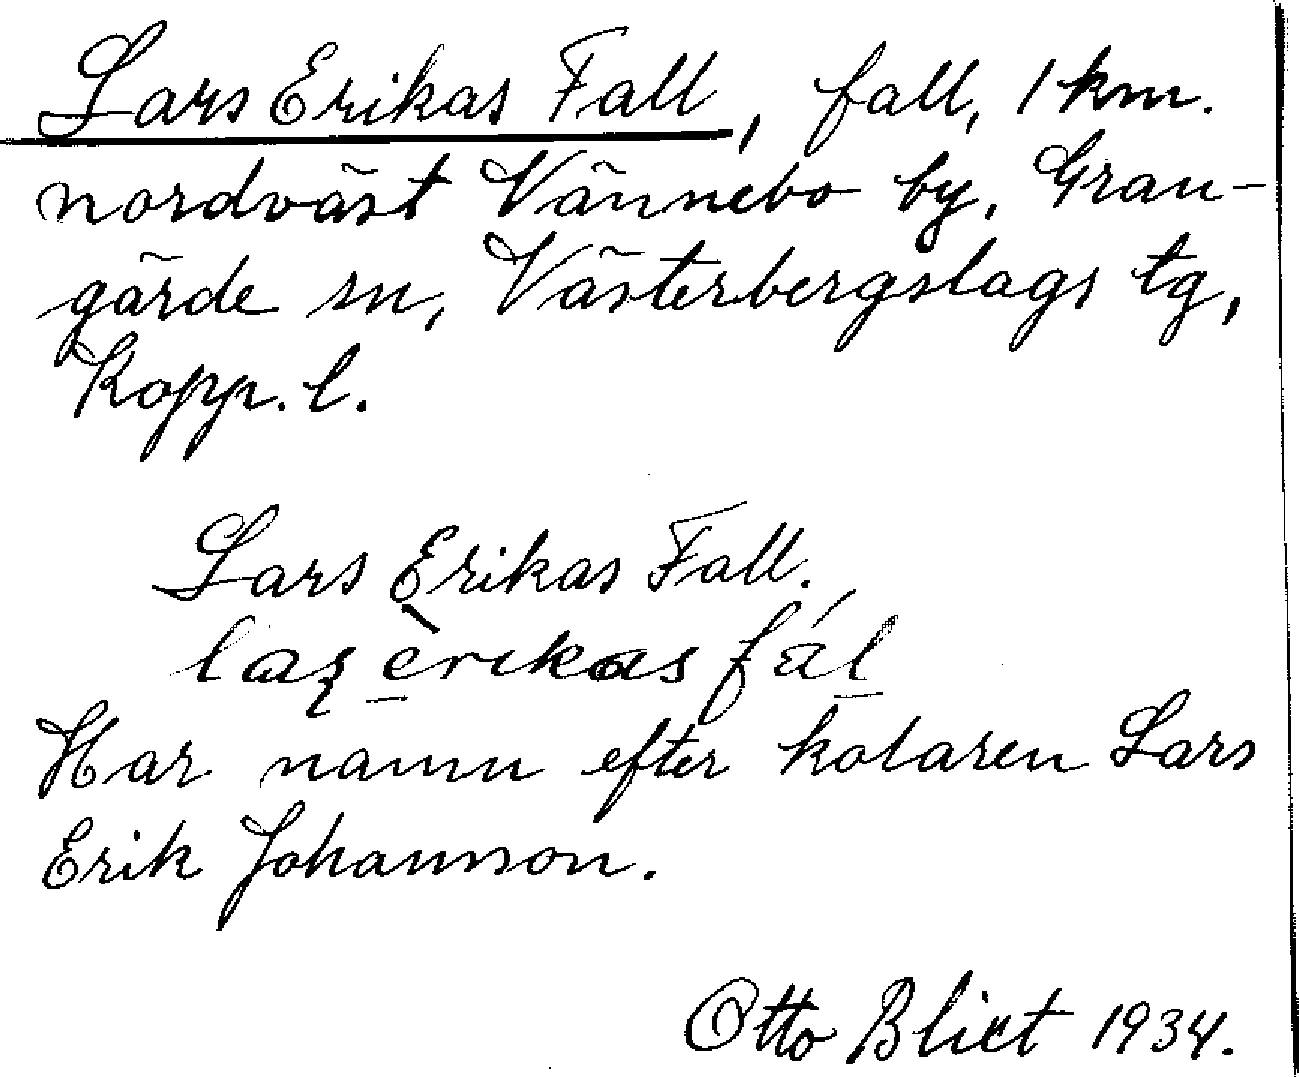 Lars Erikas Fall, fall, 1 km.
nordväst Vännebo by, Gran-
gärde sn, Västerbergslags tg,
Kopp. l.
Lars Erikas Fall.
laʂ èrikas fál
Har namn efter kolaren Lars
Erik Johansson.
Otto Blixt 1934.